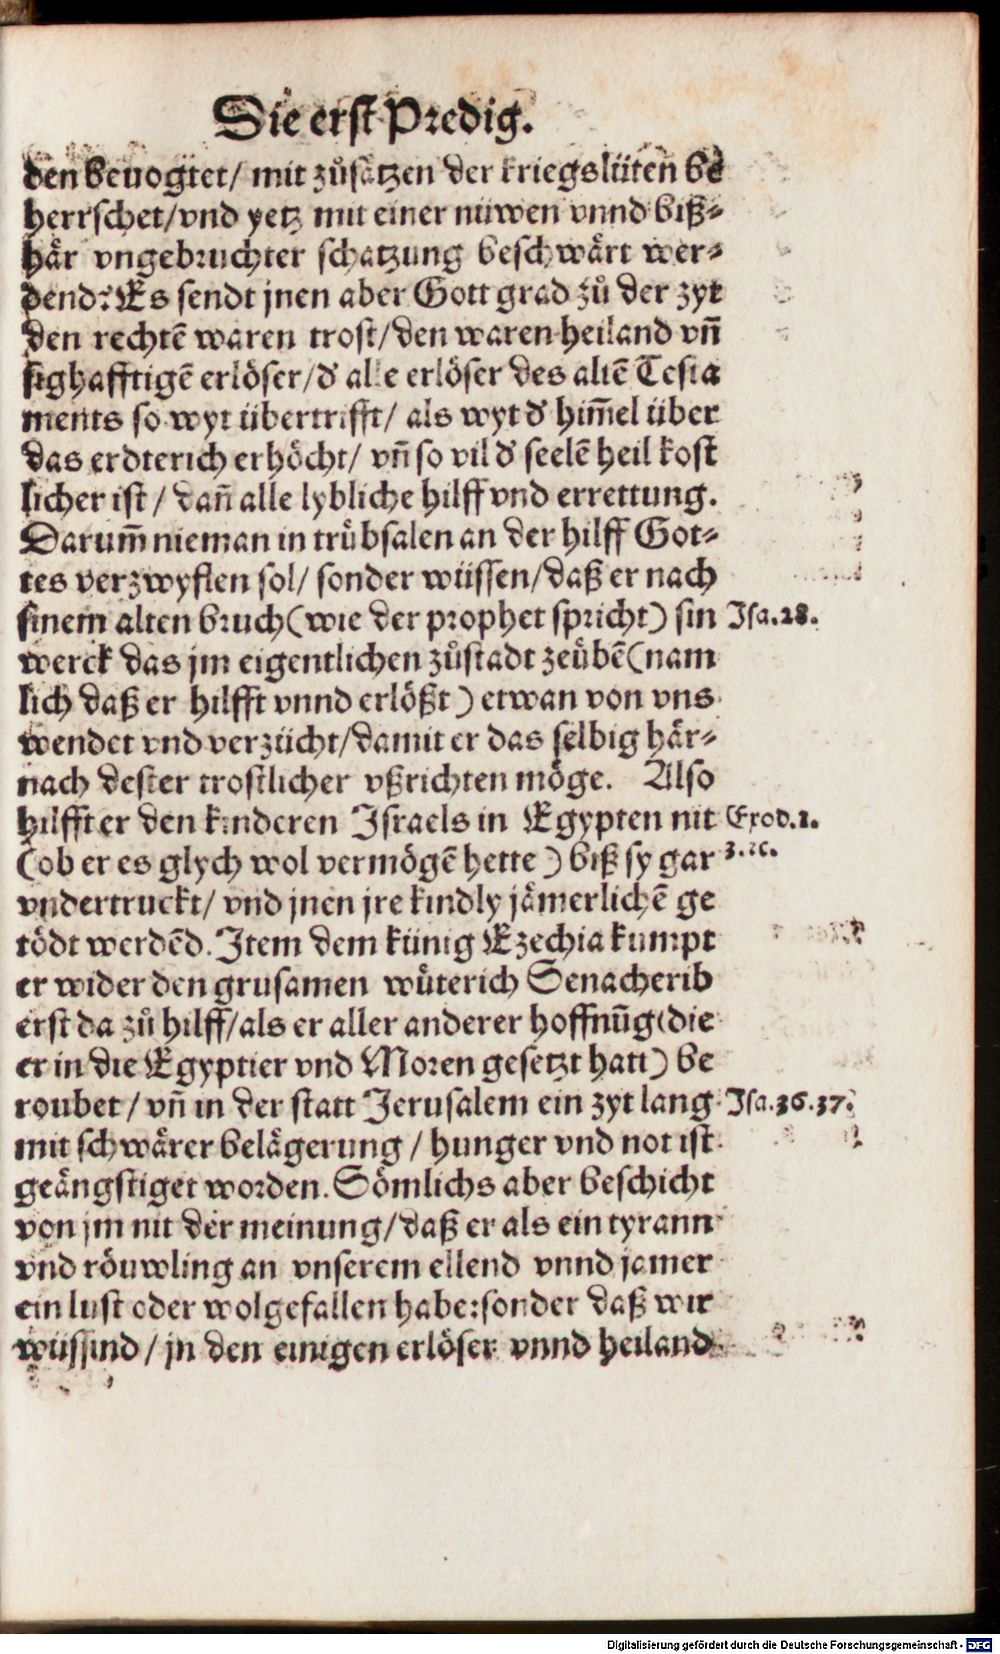 Die erst Predig.
den beuogtet/ mit zůsätzen der kriegslüten be
herrschet/vnd yetz mit einer nüwen vnnd biß⸗
här vngebruchter schatzung beschwärt wer⸗
dend? Es sendt jnen aber Gott grad zů der zyt
den rechtē waren trost/den waren heiland vn̄
sighafftigē erlöser/ď alle erlöser des altē Testa
ments so wyt übertrifft/ als wyt ď him̄el über
das erdterich erhöcht/ vn̄ so vil ď seelē heil kost
licher ist/ dan̄ alle lybliche hilff vnd errettung.
Darum̄ nieman in trübsalen an der hilff Got⸗
tes verzwyflen sol/ sonder wüssen/daß er nach
sinem alten bruch (wie der prophet spricht) sin Isa.28.
werck das jm eigentlichen zůstadt zeübē (nam
lich daß er hilfft vnnd erlößt) etwan von vns
wendet vnd verzücht/damit er das selbig här⸗
nach dester trostlicher vßrichten möge. Also
hilfft er den kinderen Israels in Egypten nit Exod.1.
(ob er es glych wol vermögē hette) biß sy gar 3.ꝛc.
vndertruckt/ vnd jnen jre kindly jämerlichē ge
tödt werdēd. Item dem künig Ezechia kumpt
er wider den grusamen wüterich Senacherib
erst da zů hilff/als er aller anderer hoffnūg (die
er in die Egyptier vnd Moren gesetzt hatt) be
roubet/ vn̄ in der statt Jerusalem ein zyt lang Isa.36.37.
mit schwärer belägerung/ hunger vnd not ist
geängstiget worden. Sömlichs aber beschicht
von jm nit der meinung/daß er als ein tyrann
vnd röuwling an vnserem ellend vnnd jamer
ein lust oder wolgefallen habe: sonder daß wir
wüssind/ jn den einigen erlöser vnnd heiland
Digitalisierung gefördert durch die Deutsche Forschungsgemeinschaft - DFG